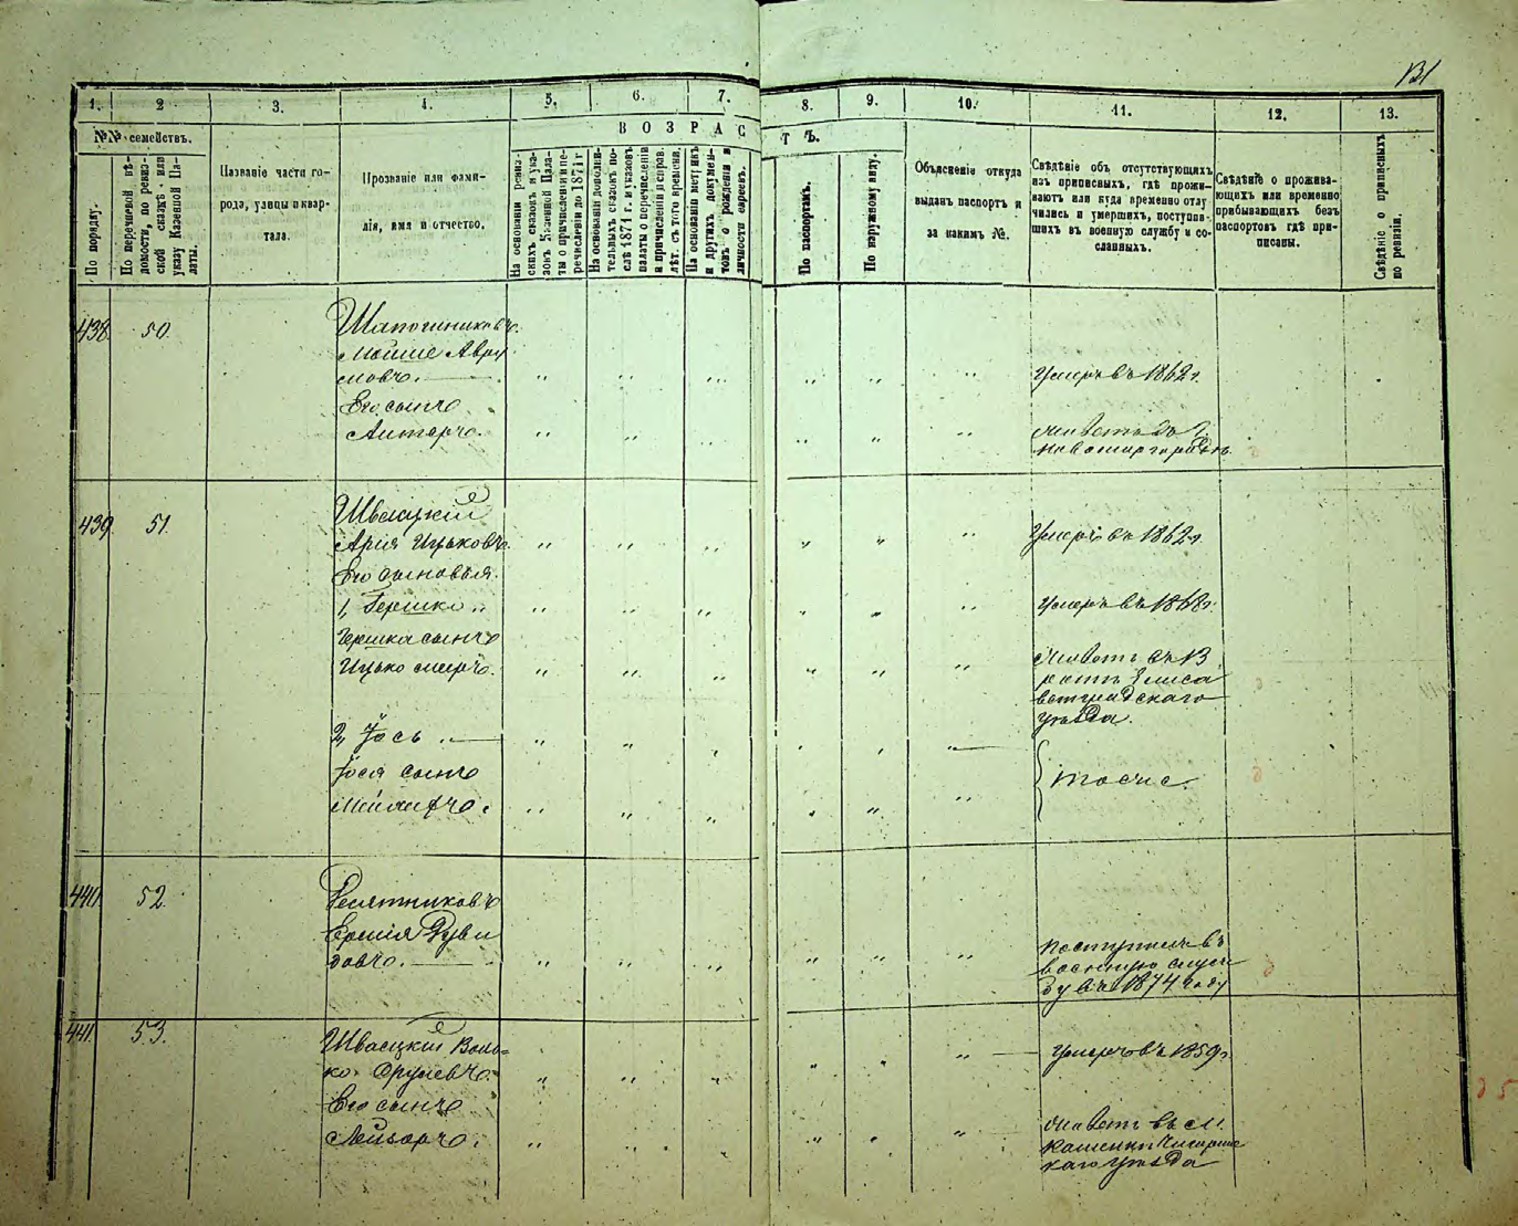 131
1. 2 3. 4. 5. 6. 7. 8. 9. 10. 11. 12. 13.
№№ семействъ.
В О З Р А С Т Ъ.
По порядку.
По перечневой вѣ-
домости, по ревиз-
ской сказкѣ или
указу Казенной Па-
латы.
Названіе части го-
рода, улицы и квар-
тала.
Прозваніе или фами-
лія, имя и отчество.
На основаніи ревиз-
скихъ сказокъ и ука-
зовъ Казенной Пала-
ты о причисленіи и пе-
речисленіи до 1871 г
На основаніи дополни-
тельныхъ сказокъ по-
слѣ 1871 г. и указовъ
палаты о перечисленіи
и причисленіи и справ.
лѣт. съ того времени.
На основаніи метрикъ
и другихъ докумен-
товъ о рожденіи и
личности евреевъ.
По паспортамъ.
По наружному виду.
Объясненіе откуда
выданъ паспортъ и
за какимъ №.
Свѣдѣніе объ отсутствующихъ
изъ приписныхъ, гдѣ прожи-
ваютъ или куда временно отлу
чились и умершихъ, поступив-
шихъ въ военную службу и со-
сланныхъ.
Свѣдѣніе о прожива-
ющихъ или временно
прибывающихъ безъ
паспортовъ гдѣ при-
писаны.
Свѣдѣніе о приписныхъ
по ревизіи.
438. 50. Шапошниковъ
Мойше Авру
мовъ. Умеръ въ 1862 г.
Его сынъ
Литеръ. Живетъ въ г.
Новомиргородѣ.
439. 51. Швецкій
Арія Ицьковъ. Умеръ въ 1862 г.
Его сыновья.
1, Гершко Умеръ въ 1868 г.
Гершка сынъ
Ицько Живетъ въ
Елиса
ветградскаго
уѣзда.
2, Іось
Іося сынъ тоже.
440. 52.
Дуви
довъ. поступилъ въ
военную служ
бу въ 1874 году
441. 53. Швецкій Воль-
ко Сруревъ. Умеръ въ 1859 г.
Его сынъ
Лейзеръ. Живетъ въ м.
Каменкѣ Чигирин
каго уѣзда